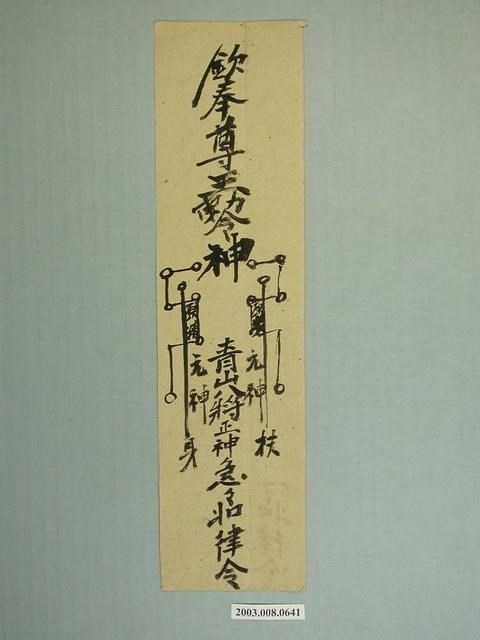 欽奉尊王勅令神
青山八將正神急急如律令
元神扶
元神身
2003.008.0641